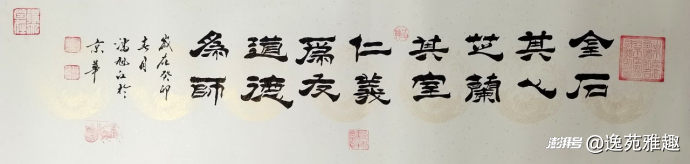 金石
其心
芝蘭
其室
仁義
為友
道德
為師
歲在癸卯
春月
於
京華
澎湃号@逸苑雅趣